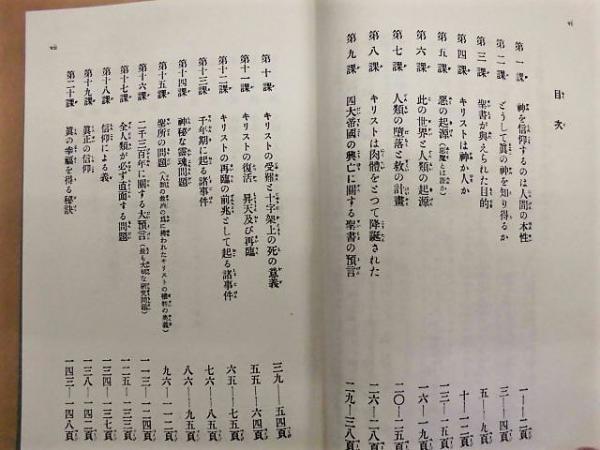 vi
目次
第一課 神を信仰するのは人間の本性 一—二頁
第二課 どうして眞の神を知り得るか 三—四頁
第三課 聖書が與えられた目的 五—九頁
第四課 キリストは神か人か 十—十二頁
第五課 惡の起源(惡魔とは誰か) 一三—一五頁
第六課 此の世界と人類の起源 一六—一九頁
第七課 人類の墮落と救の計畫 二〇—二五頁
第八課 キリストは肉體をとつて降誕された 二六—二八頁
第九課 四大帝國の興亡に關する聖書の預言 二九—三八頁
vii
第十課 キリストの受難と十字架上の死の意義 三九—五四頁
第十一課 キリストの復活 昇天及び再臨 五五—六四頁
第十二課 キリストの再臨の前兆として起る諸事件 六五—七五頁
第十三課 千年期に起る諸事件 七六—八五頁
第十四課 神秘な靈魂問題 八六—九五頁
第十五課 聖所の問題(人類の救濟の爲に拂われたキリストの犧牲の奧義) 九六—一一二頁
第十六課 二千三百年に關する大預言(最も大切な研究問題) 一一三—一二四頁
第十七課 全人類が必ず直面する問題 一二五—一三三頁
第十八課 信仰による義 一三四—一三七頁
第十九課 眞正の信仰 一三八—一四二頁
第二十課 眞の幸福を得る秘訣 一四三—一四八頁